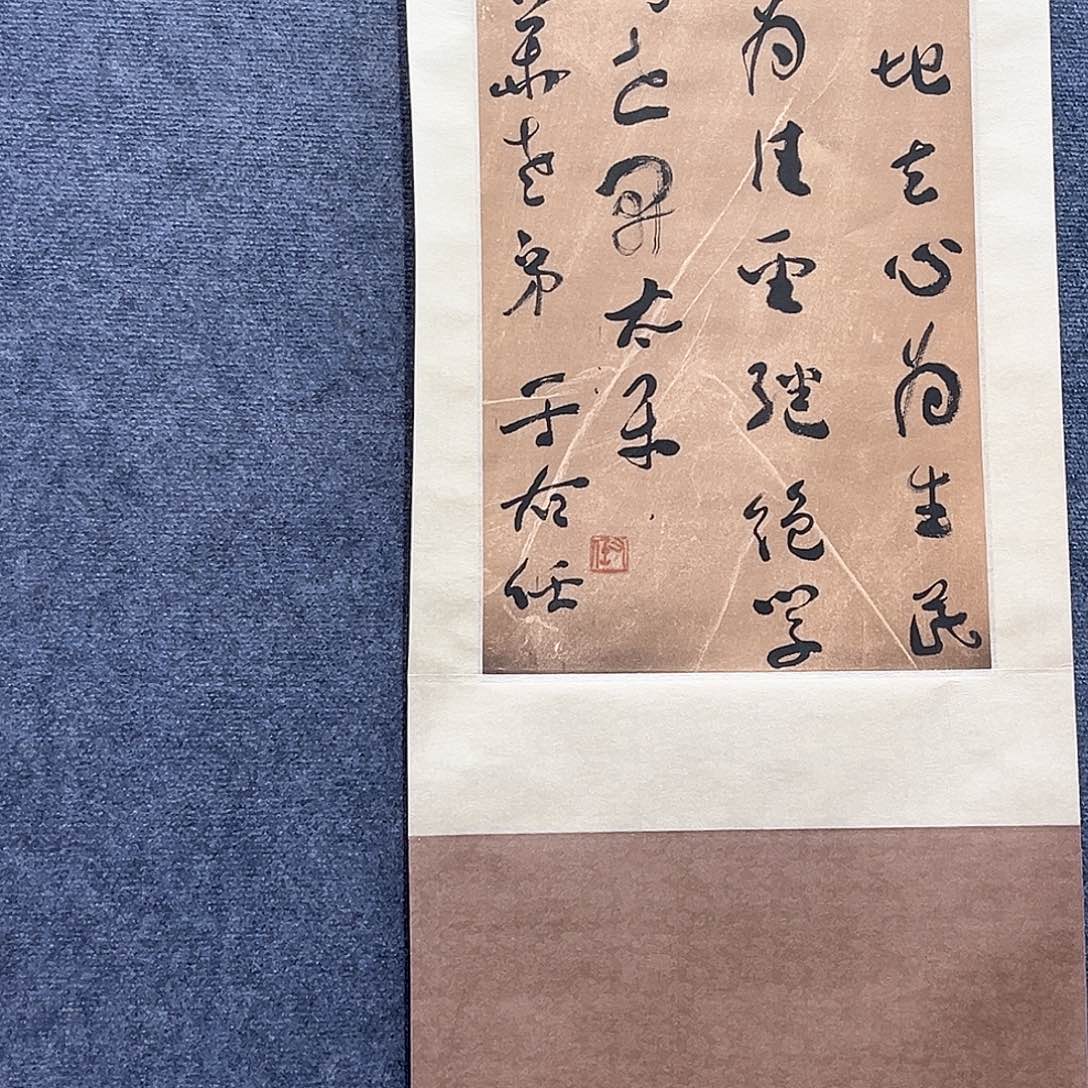 地立心為生民
為往聖繼絕學
世開太平
老弟 于右任